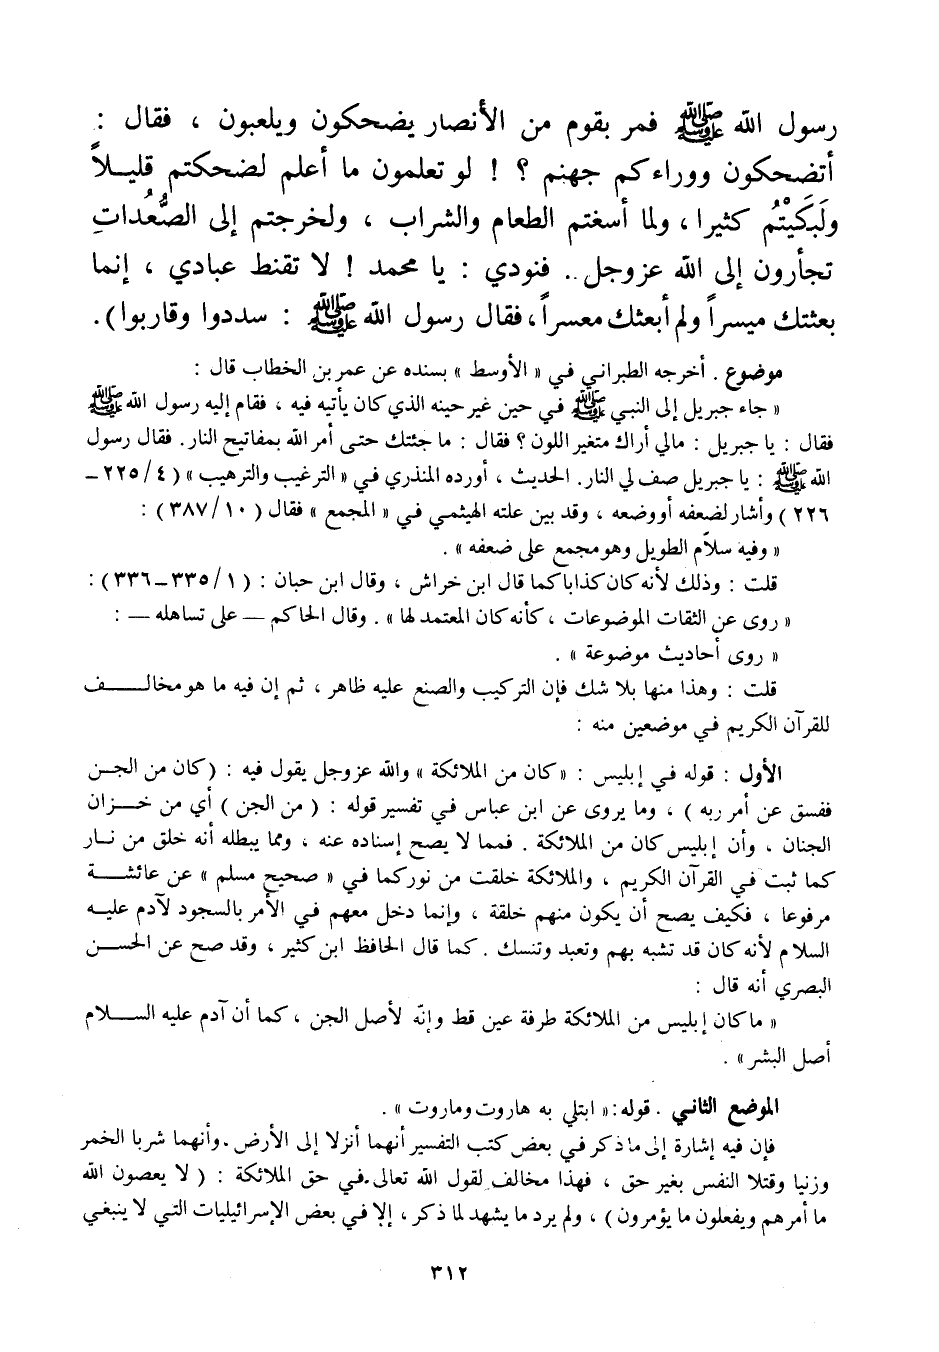 رسول الله ﷺ فمر بقوم من الأنصار يضحكون ويلعبون ، فقال :
أتضحكون ووراءكم جهنم ؟ ! لو تعلمون ما أعلم لضحكتم قليلاً
ولَبَكَيْتُم كثيرا ، ولما أسغتم الطعام والشراب ، ولخرجتم إلى الصُّعُداتِ
تجأرون إلى الله عزوجل .. فنودي : يا محمد ! لا تقنط عبادي ، إنما
بعثتك ميسراً ولم أبعثك معسراً ، فقال رسول الله ﷺ : سددوا وقاربوا ) .
موضوع . أخرجه الطبراني في « الأوسط » بسنده عن عمر بن الخطاب قال :
« جاء جبريل إلى النبي ﷺ في حين غير حينه الذي كان يأتيه فيه ، فقام إليه رسول الله ﷺ
فقال : يا جبريل : مالي أراك متغير اللون ؟ فقال : ما جئتك حتى أمر الله بمفاتيح النار . فقال رسول
الله ﷺ : يا جبريل صف لي النار . الحديث ، أورده المنذري في « الترغيب والترهيب » ( ٤ / ٢٢٥ –
٢٢٦ ) وأشار لضعفه أو وضعه ، وقد بين علته الهيثمي في « المجمع » فقال ( ١٠ / ٣٨٧ ) :
« وفيه سلاّم الطويل وهو مجمع على ضعفه » .
قلت : وذلك لأنه كان كذابا كما قال ابن خراش ، وقال ابن حبان : ( ١ / ٣٣٥ – ٣٣٦ ) :
« روى عن الثقات الموضوعات ، كأنه كان المعتمد لها » . وقال الحاكم — على تساهله — :
« روى أحاديث موضوعة » .
قلت : وهذا منها بلا شك فإن التركيب والصنع عليه ظاهر ، ثم إن فيه ما هو مخالف
للقرآن الكريم في موضعين منه :
الأول : قوله في إبليس : « كان من الملائكة » والله عزوجل يقول فيه : ( كان من الجن
ففسق عن أمر ربه ) ، وما يروى عن ابن عباس في تفسير قوله : ( من الجن ) أي من خزان
الجنان ، وأن إبليس كان من الملائكة . فمما لا يصح إسناده عنه ، ومما يبطله أنه خلق من نار
كما ثبت في القرآن الكريم ، والملائكة خلقت من نور كما في « صحيح مسلم » عن عائشة
مرفوعا ، فكيف يصح أن يكون منهم خلقة ، وإنما دخل معهم في الأمر بالسجود لآدم عليه
السلام لأنه كان قد تشبه بهم وتعبد وتنسك . كما قال الحافظ ابن كثير ، وقد صح عن الحسن
البصري أنه قال :
« ما كان إبليس من الملائكة طرفة عين قط وإنّه لأصل الجن ، كما أن آدم عليه السلام
أصل البشر » .
الموضع الثاني . قوله : « ابتلي به هاروت وماروت » .
فإن فيه إشارة إلى ما ذكر في بعض كتب التفسير أنهما أنزلا إلى الأرض . وأنهما شربا الخمر
وزنيا وقتلا النفس بغير حق ، فهذا مخالف لقول الله تعالى في حق الملائكة : ( لا يعصون الله
ما أمرهم ويفعلون ما يؤمرون ) ، ولم يرد ما يشهد لما ذكر ، إلا في بعض الإسرائيليات التي لا ينبغي
٣١٢